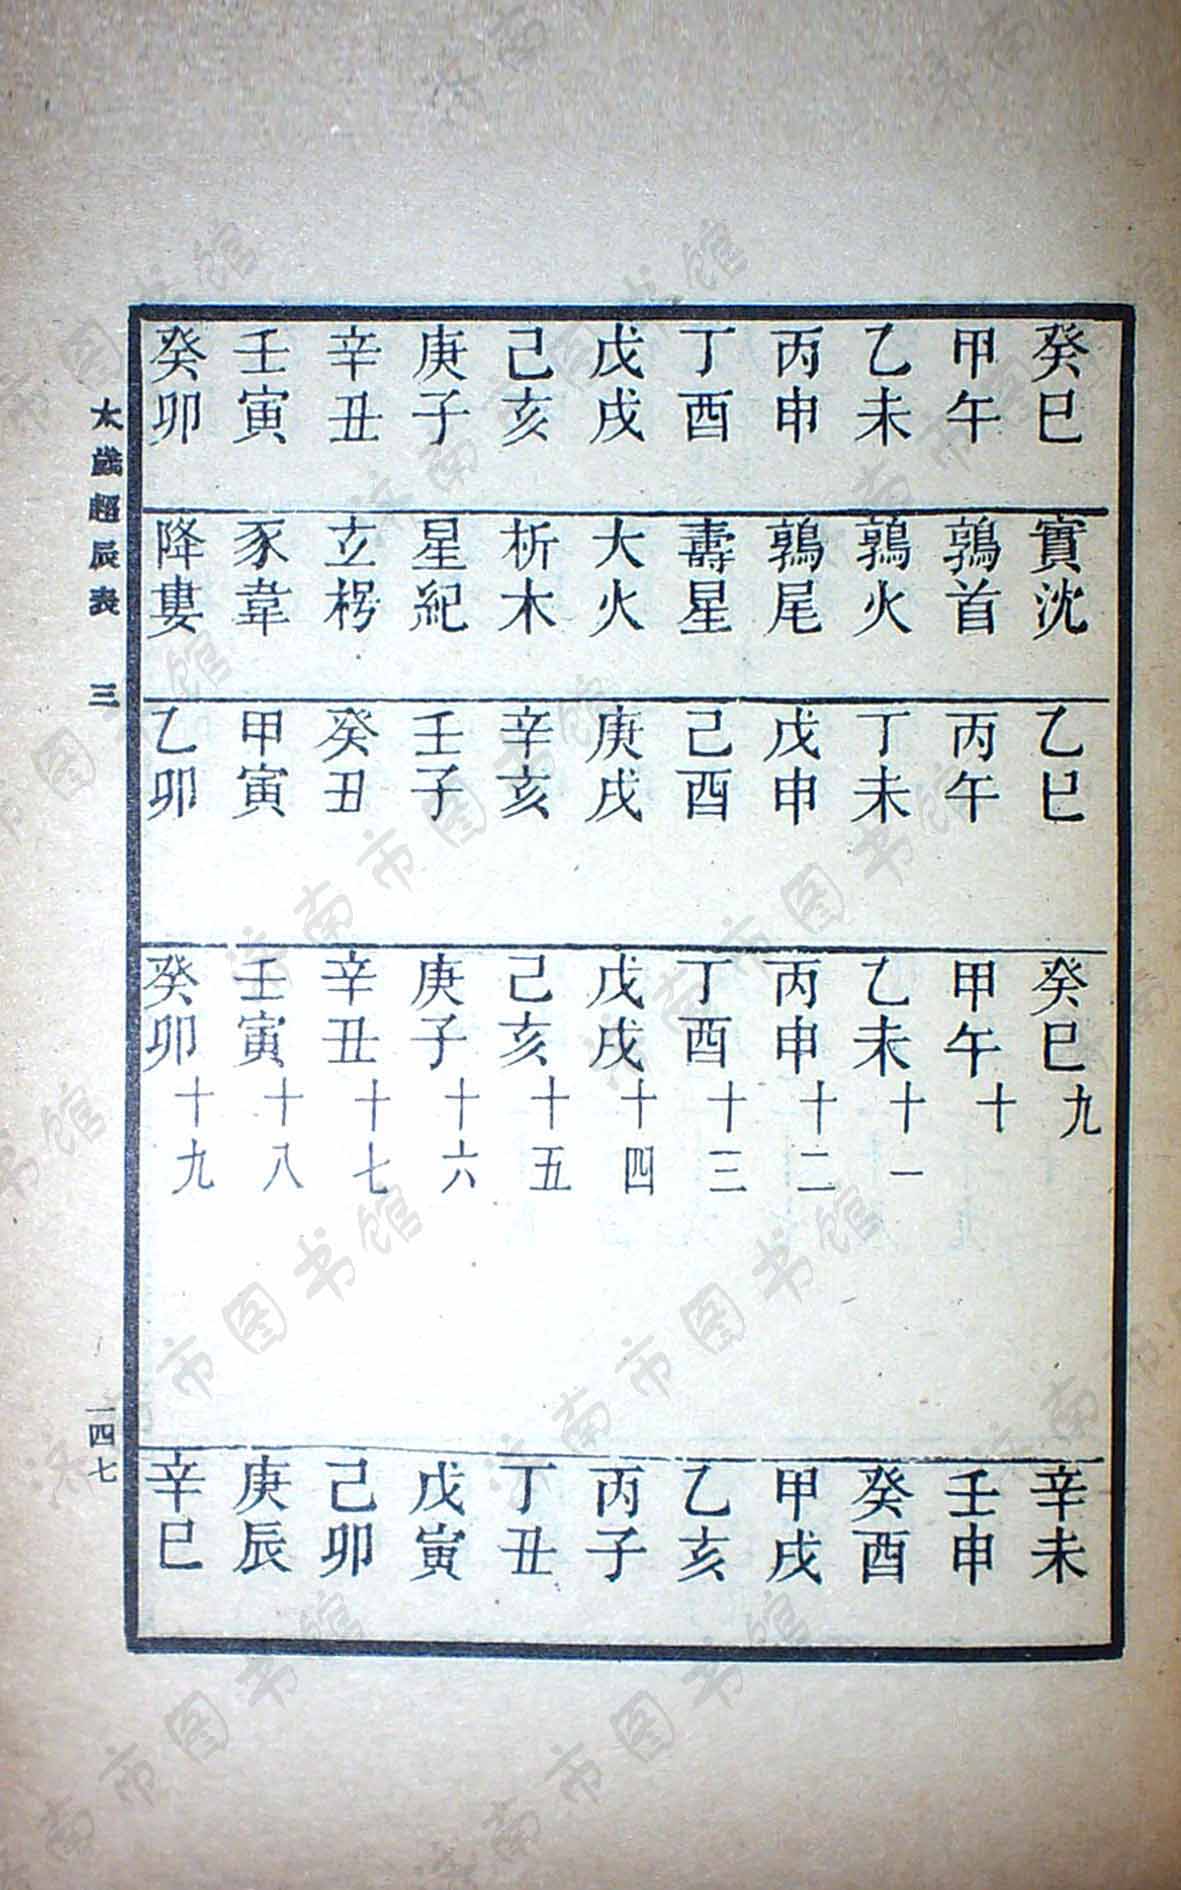 癸巳 實沈 乙巳 癸巳九 辛未
甲午 鶉首 丙午 甲午十 壬申
乙未 鶉火 丁未 乙未十一 癸酉
丙申 鶉尾 戊申 丙申十二 甲戌
丁酉 壽星 己酉 丁酉十三 乙亥
戊戌 大火 庚戌 戊戌十四 丙子
己亥 析木 辛亥 己亥十五 丁丑
庚子 星紀 壬子 庚子十六 戊寅
辛丑 玄枵 癸丑 辛丑十七 己卯
壬寅 豕韋 甲寅 壬寅十八 庚辰
癸卯 降婁 乙卯 癸卯十九 辛巳
太歲超辰表 三 一四七
济南市图书馆